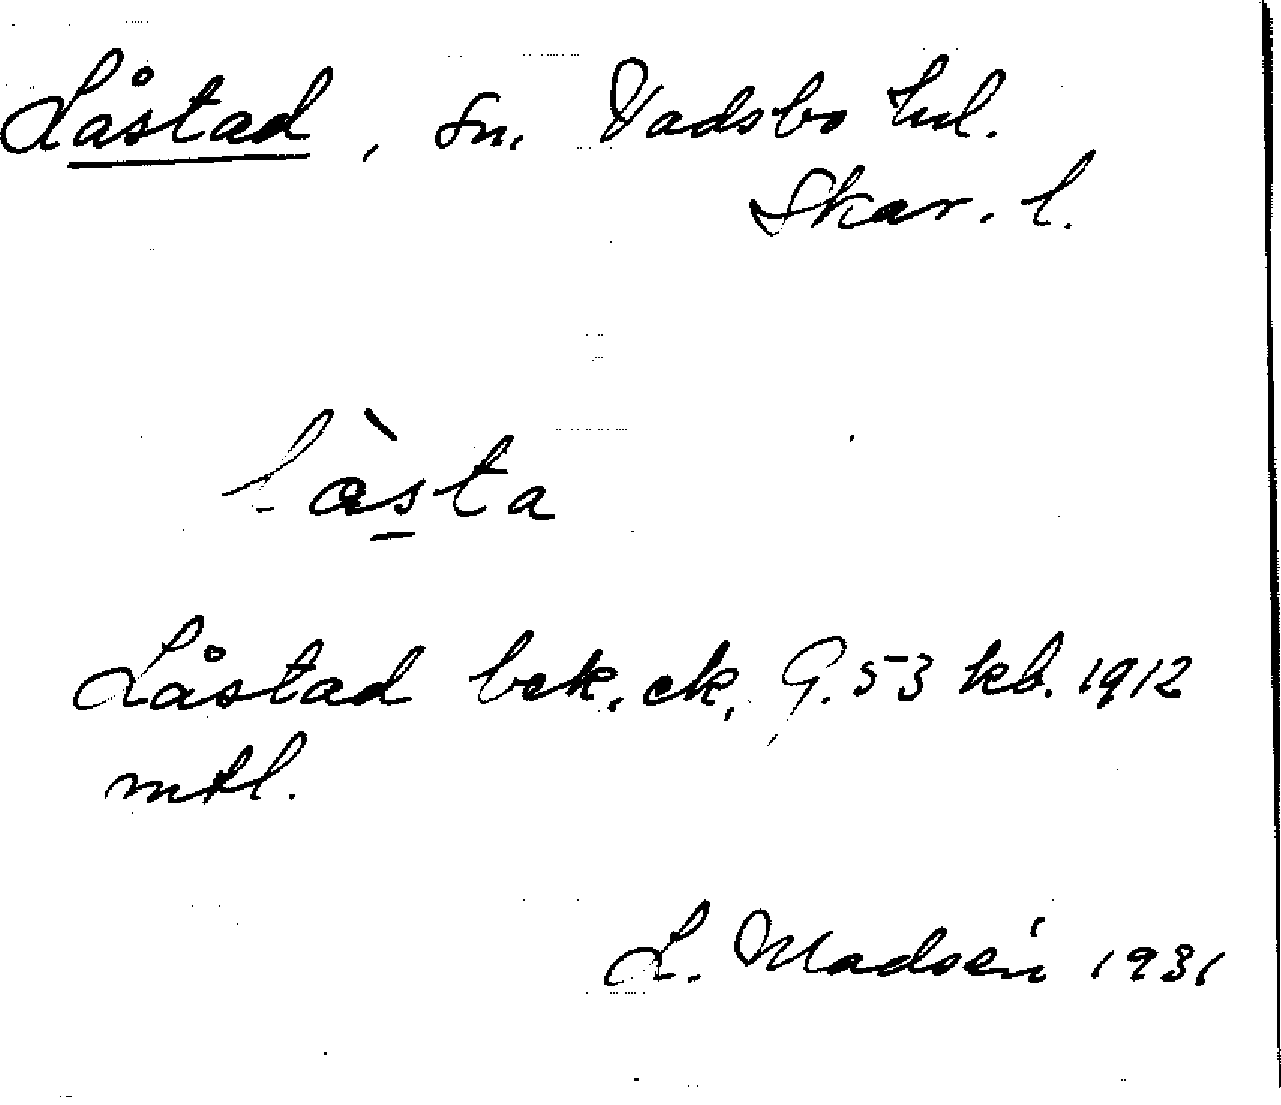 Låstad, sn. Vadsbo hd.
Skar. l.
làsta
Låstad bek. ek. G. 53 kb. 1912
mtl.
L. Madsén 1931